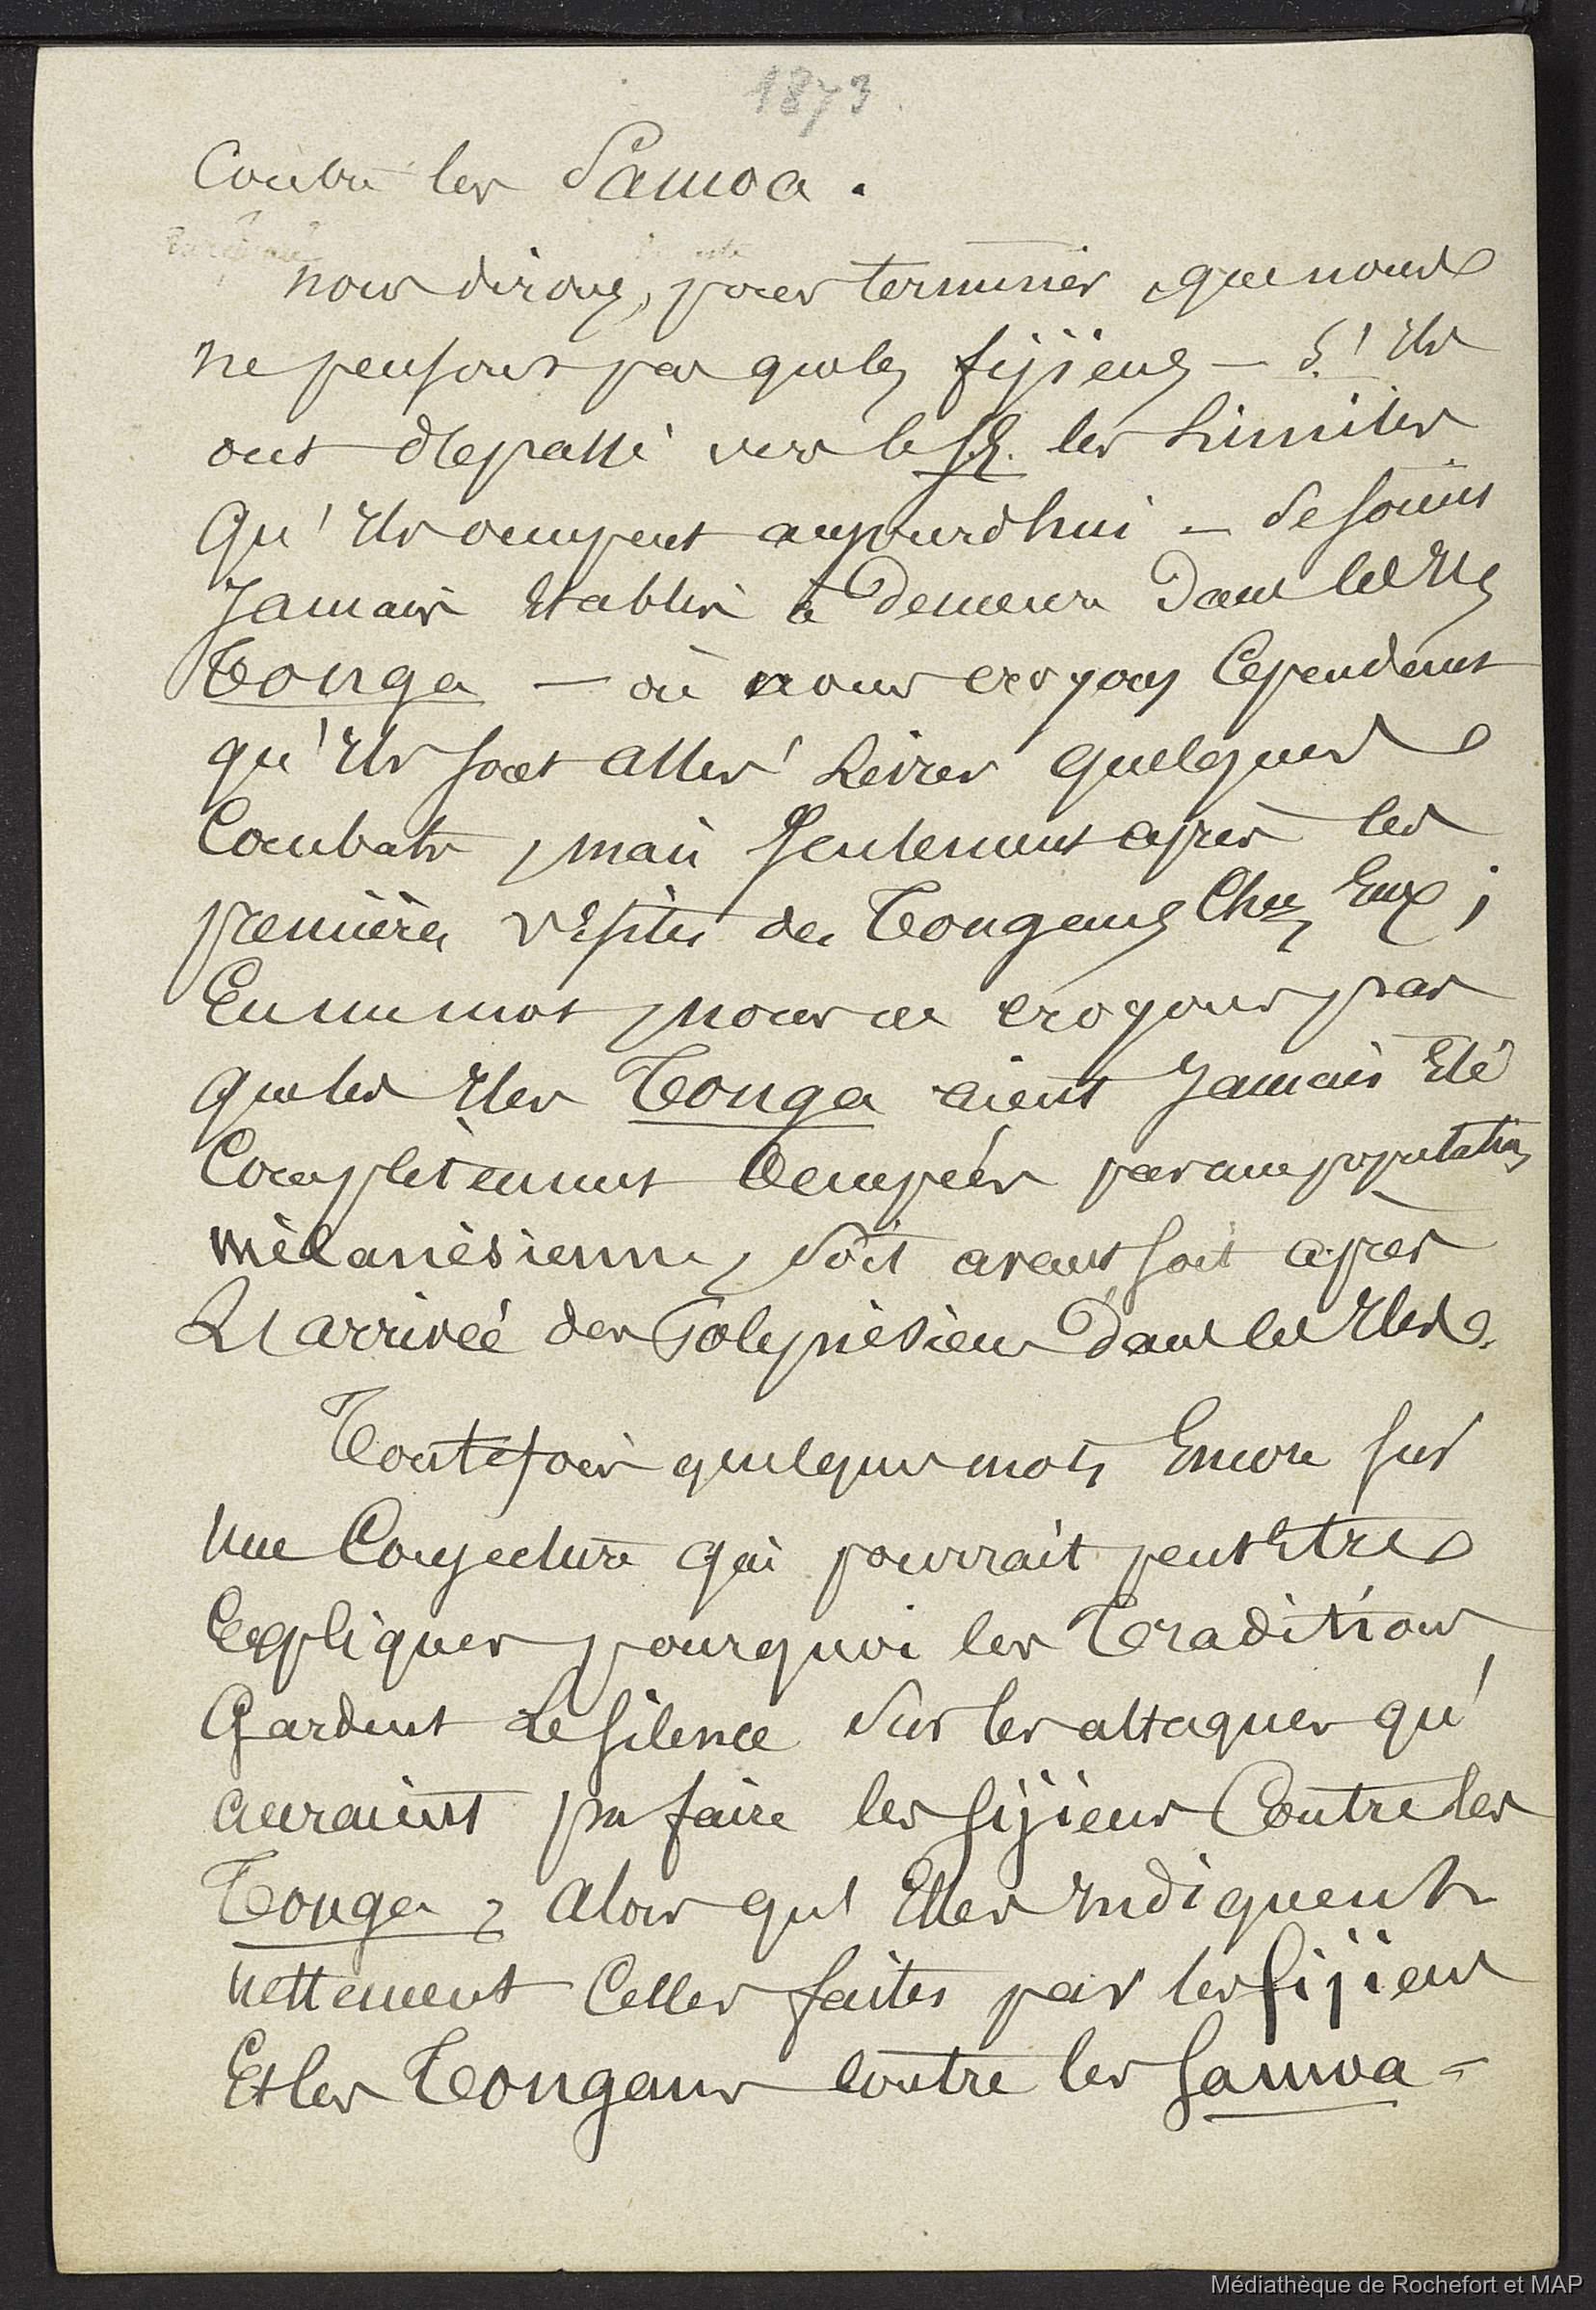 1873
Contre les Samoa.
nous dirons, pour terminer, que nous
ne pensons pas que les fijiens – s'ils
ont dépassé vers le S.E. les Limites
Qu'Ils occupent aujourdhui – se soient
Jamais Etablis à Demeure Dans les Iles
Tonga – où nous croyons Cependant
qu'Ils sont Allés Livrer quelques
Combats, mais seulement après les
premières visites des Tongans Chez Eux;
En un mot, nous ne croyons pas
que les Iles Tonga aient Jamais Eté
Complètement Occupées par une population
mélanésienne, soit avant soit après
L'arrivée des Polynésiens Dans les Iles.
Toutefois quelques mots Encore sur
une Conjecture qui pourrait peut Etre
Expliquer pourquoi les Traditions,
Gardent Le silence sur les attaques qu'
auraient pu faire les fijiens Contre les
Tonga, Alors qu'Elles Indiquent
nettement Celles faites par les fijiens
Et les Tongans contre les Samoa –
Médiathèque de Rochefort et MAP